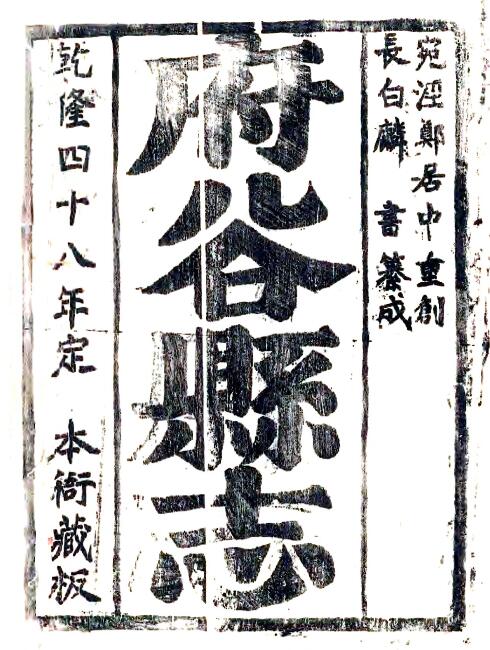 宛涇鄭居中重創
長白麟 書纂成
府谷縣志
乾隆四十八年定 本衙藏板